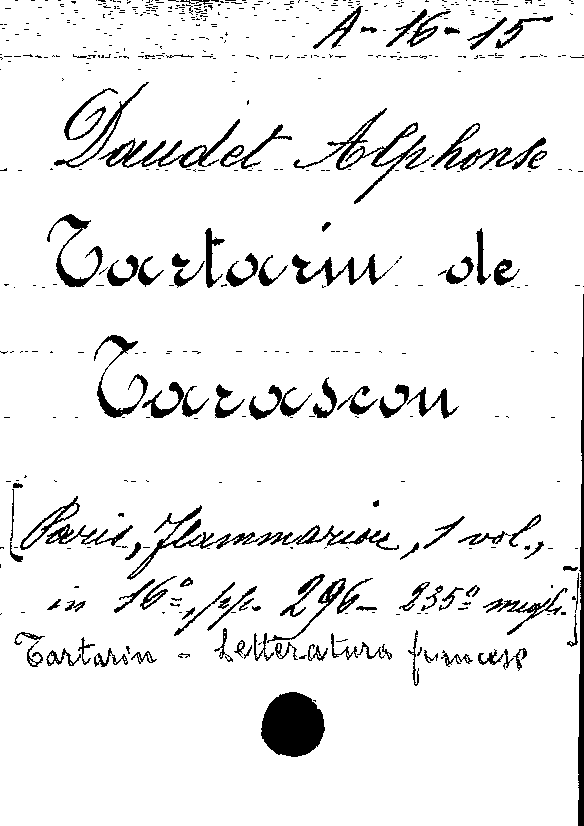 A-16-15
Daudet Alphonse
Tartarin de
Tarascon
[Paris, Flammarion, 1 vol.,
in 16º, pp. 296- 235º migl.]
Tartarin - Letteratura francese